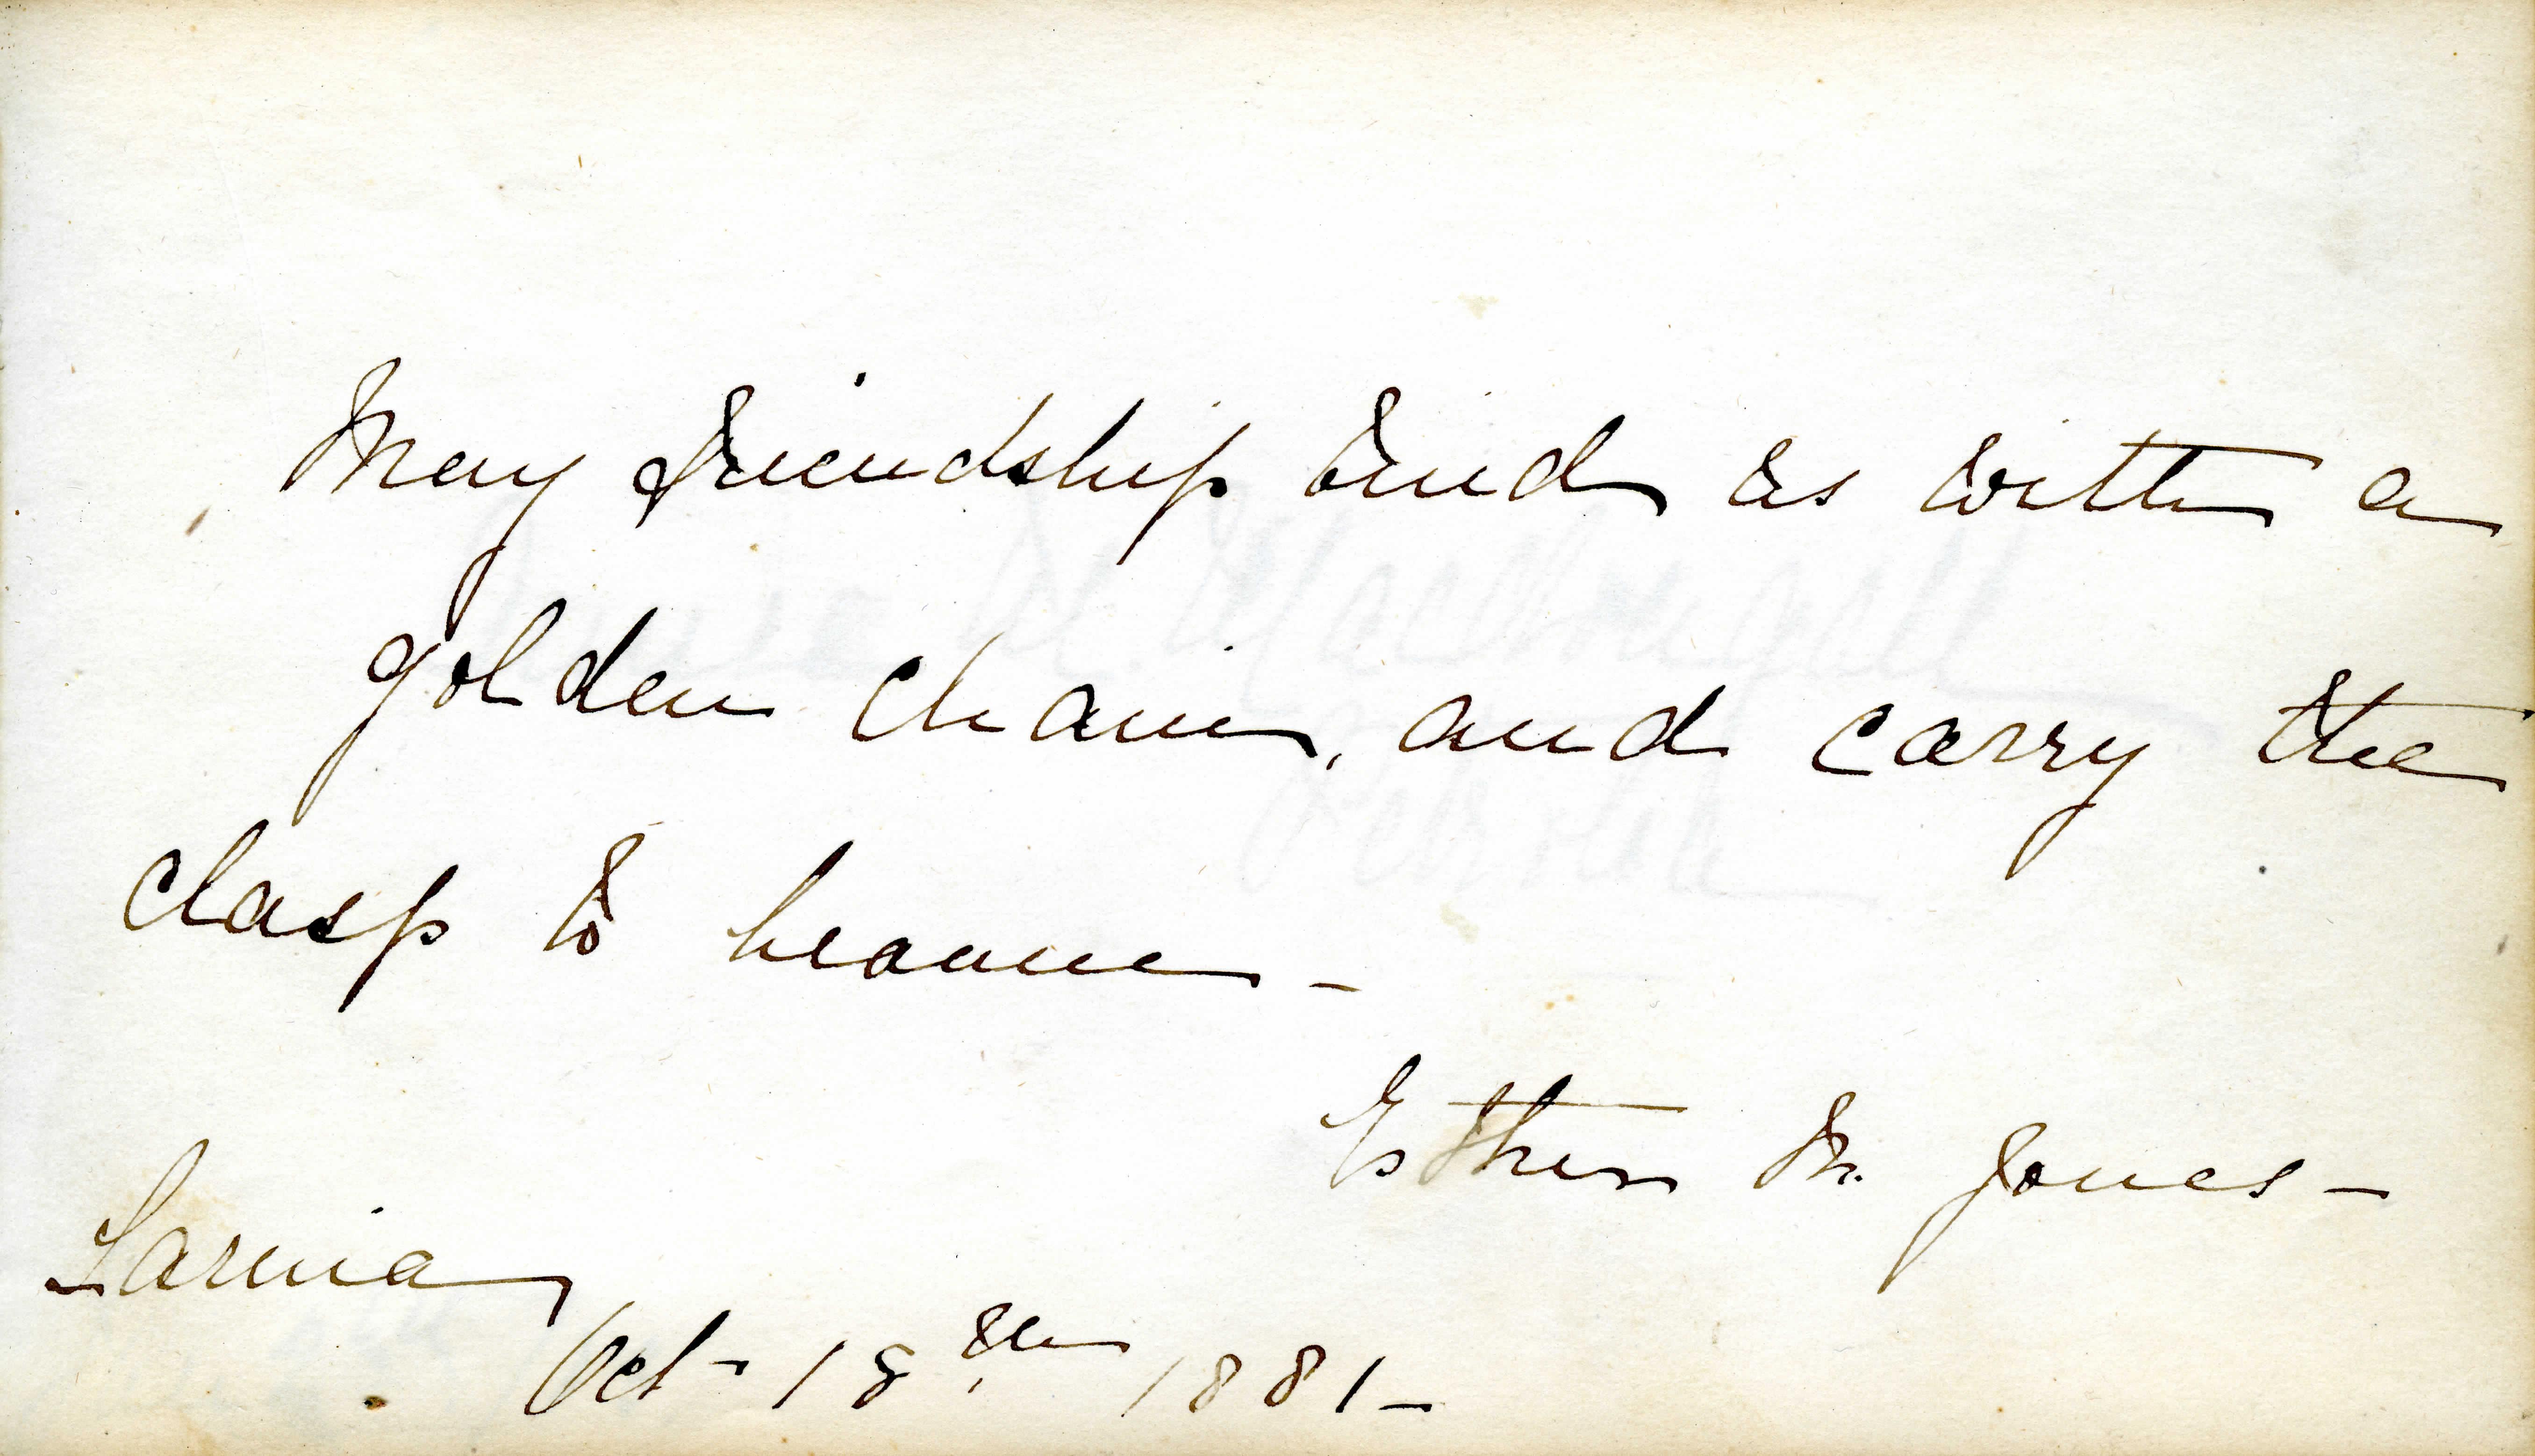 May friendship bind us with a
golden chain, and carry the
clasp to heaven -
Esther M. Jones -
Sarnia
Oct - 18th 1881 -